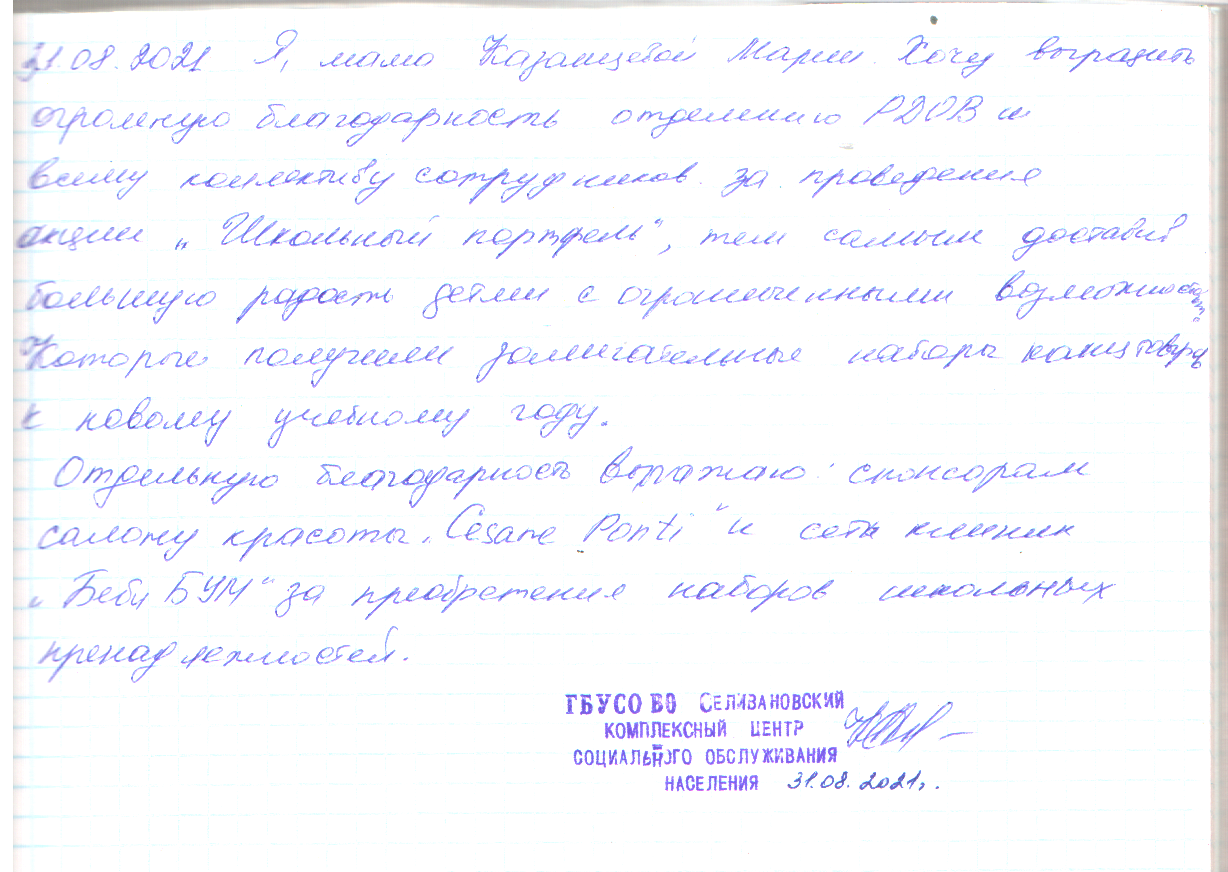 31.08.2021 Я, мама Казанцевой Марии. Хочу выразить
огромную благодарность отделению РДОВ и
всему коллективу сотрудников за проведения
акции „Школьный портфель", тем самым доставив
большую радость детям с ограниченными возможностями.
Которые получили замечательные наборы канцтоваров
к новому учебному году.
Отдельную благодарность выражаю: спонсорам
салону красоты „Cesare Ponti" и сети клиник
„Беби БУМ" за преобретения наборов школьных
пренадлежностей.
ГБУСО ВО СЕЛИВАНОВСКИЙ
КОМПЛЕКСНЫЙ ЦЕНТР
СОЦИАЛЬНОГО ОБСЛУЖИВАНИЯ
НАСЕЛЕНИЯ 31.08.2021г.